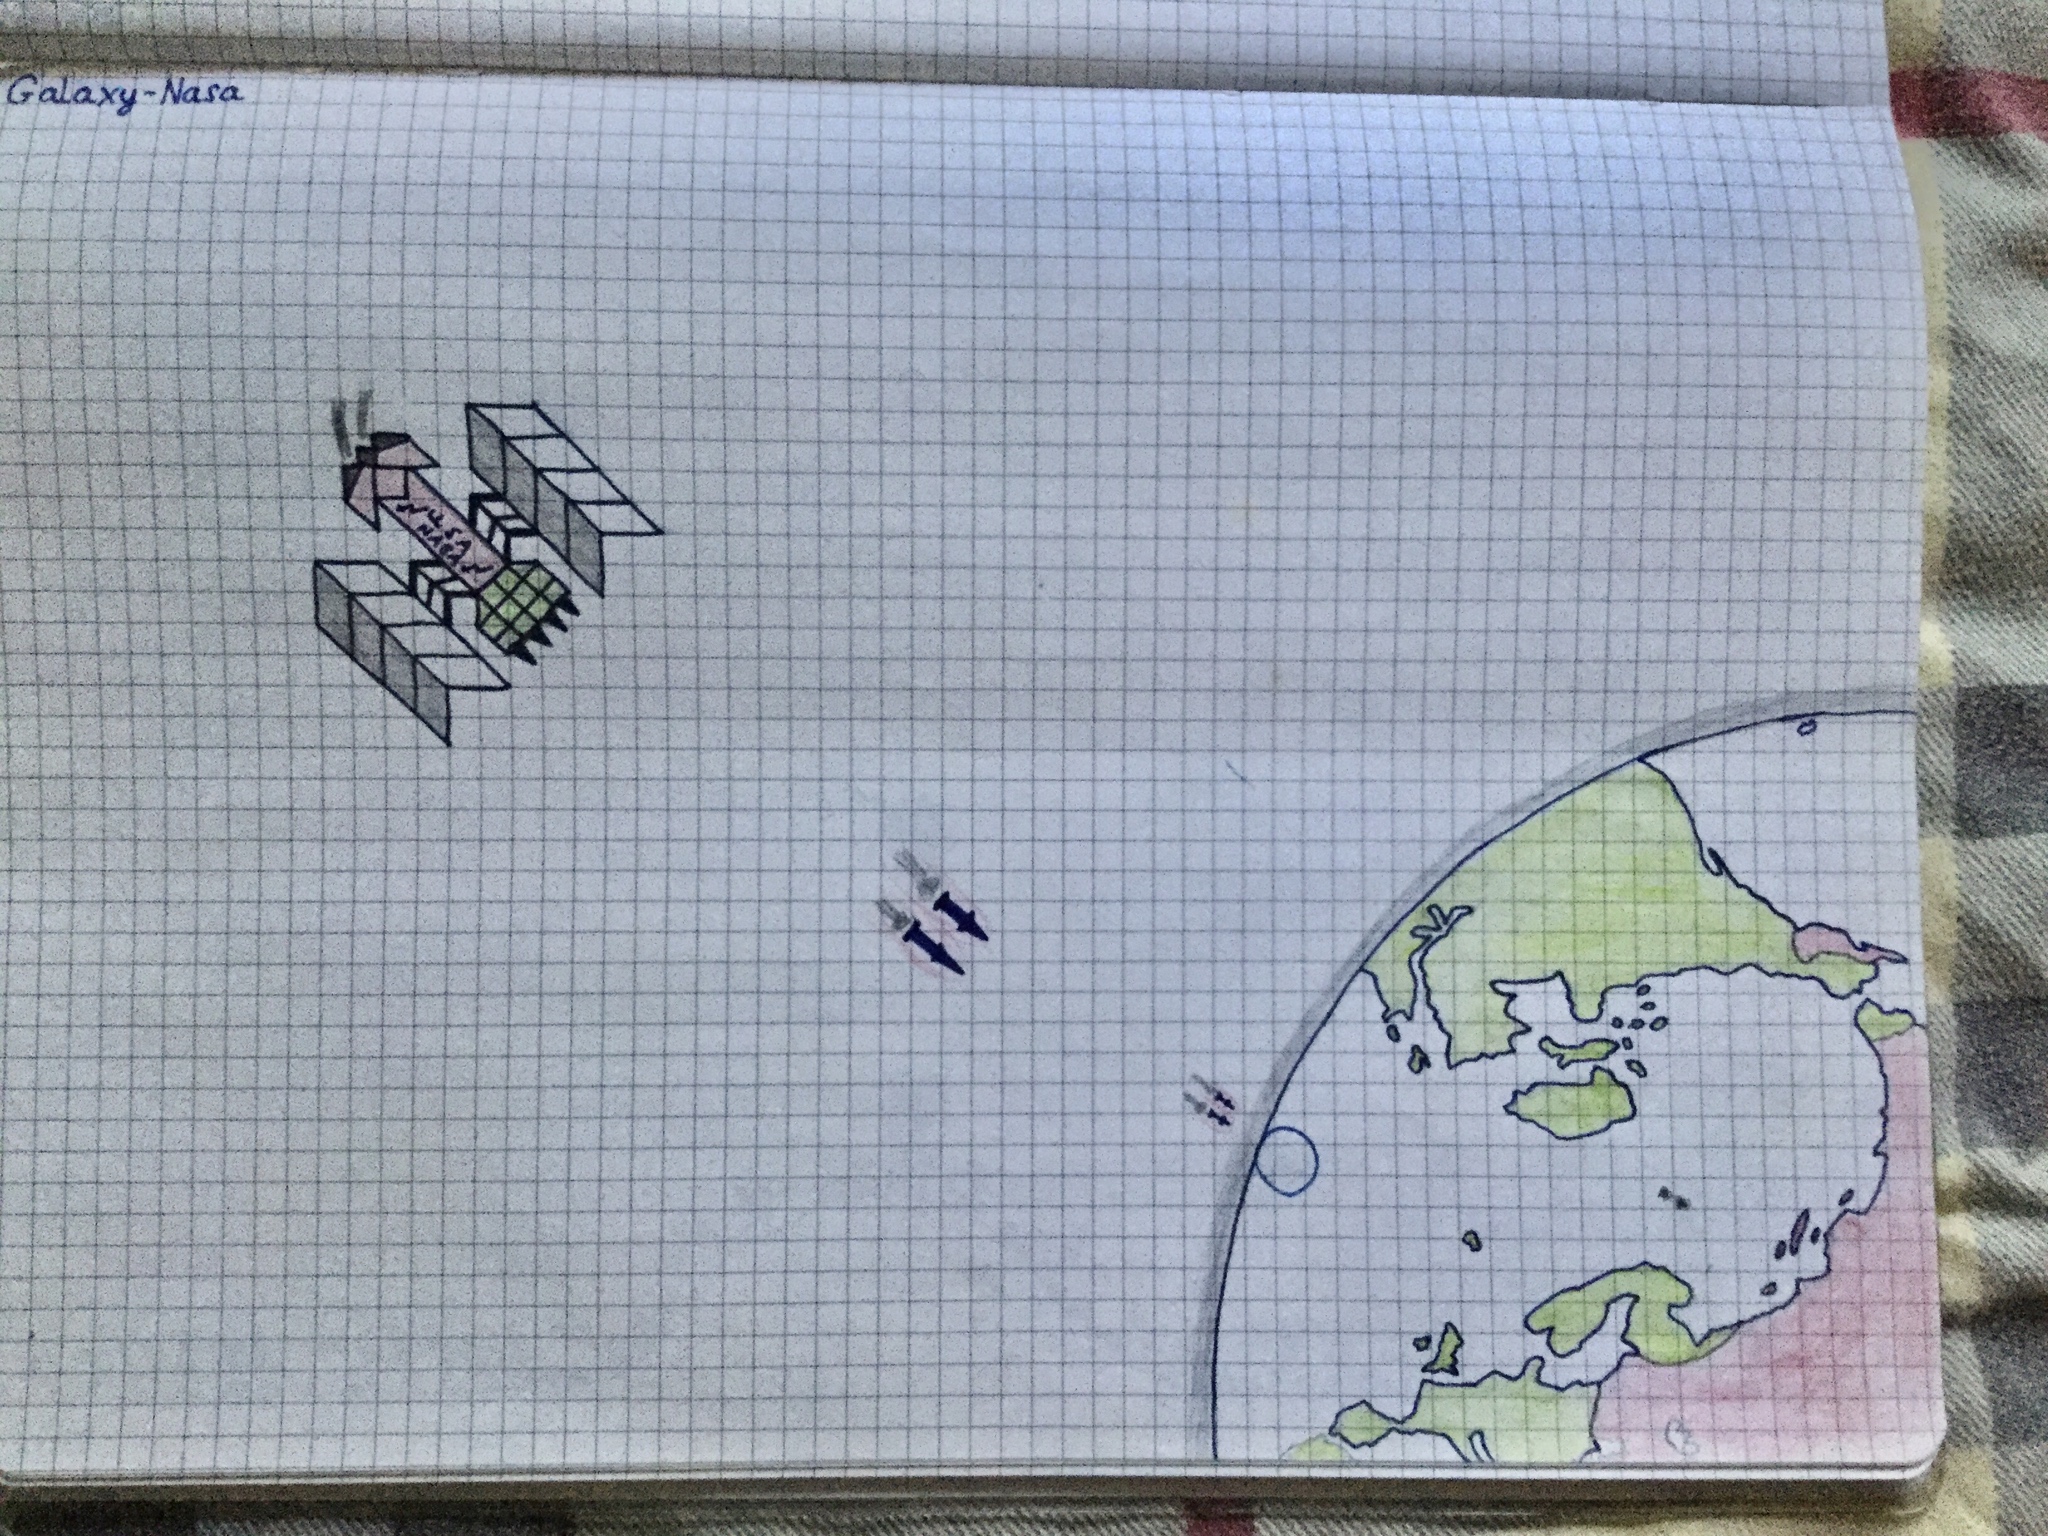 Galaxy-Nasa
USA
NASA